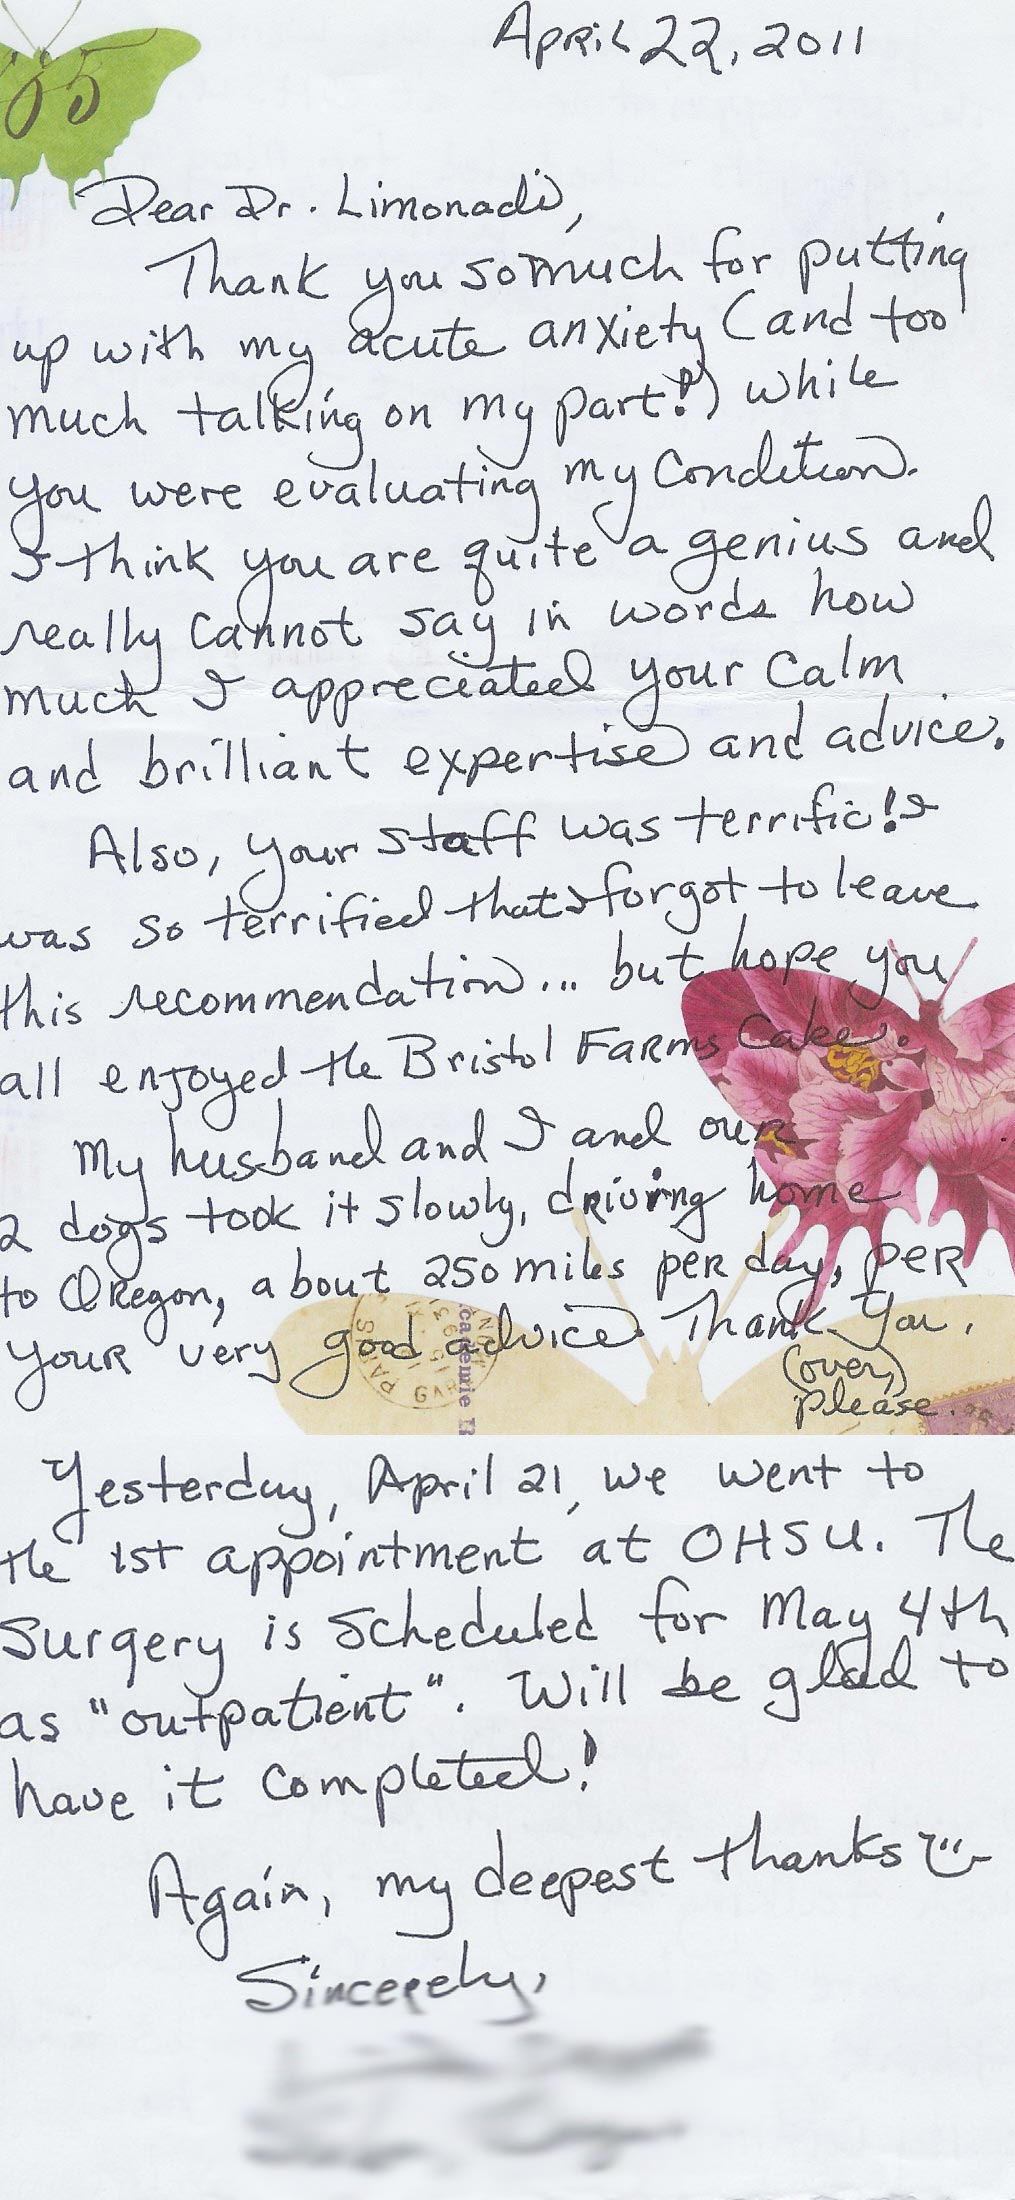 April 22, 2011
05
Dear Dr. Limonadi,
Thank you so much for putting
up with my acute anxiety (and too
much talking on my part!) while
you were evaluating my condition.
I think you are quite a genius and
really cannot say in words how
much I appreciated your calm
and brilliant expertise and advice.
Also, your staff was terrific! I
was so terrified that I forgot to leave
this recommendation... but hope you
all enjoyed the Bristol Farms Cake.
My husband and I and our
2 dogs took it slowly, driving home
to Oregon, about 250 miles per day, per
your very good advice. Thank you.
(over,)
please.
PARIS
GARE
cademie
Yesterday, April 21, we went to
the 1st appointment at OHSU. The
Surgery is scheduled for May 4th
as "outpatient". Will be glad to
have it completed!
Again, my deepest thanks
Sincerely,